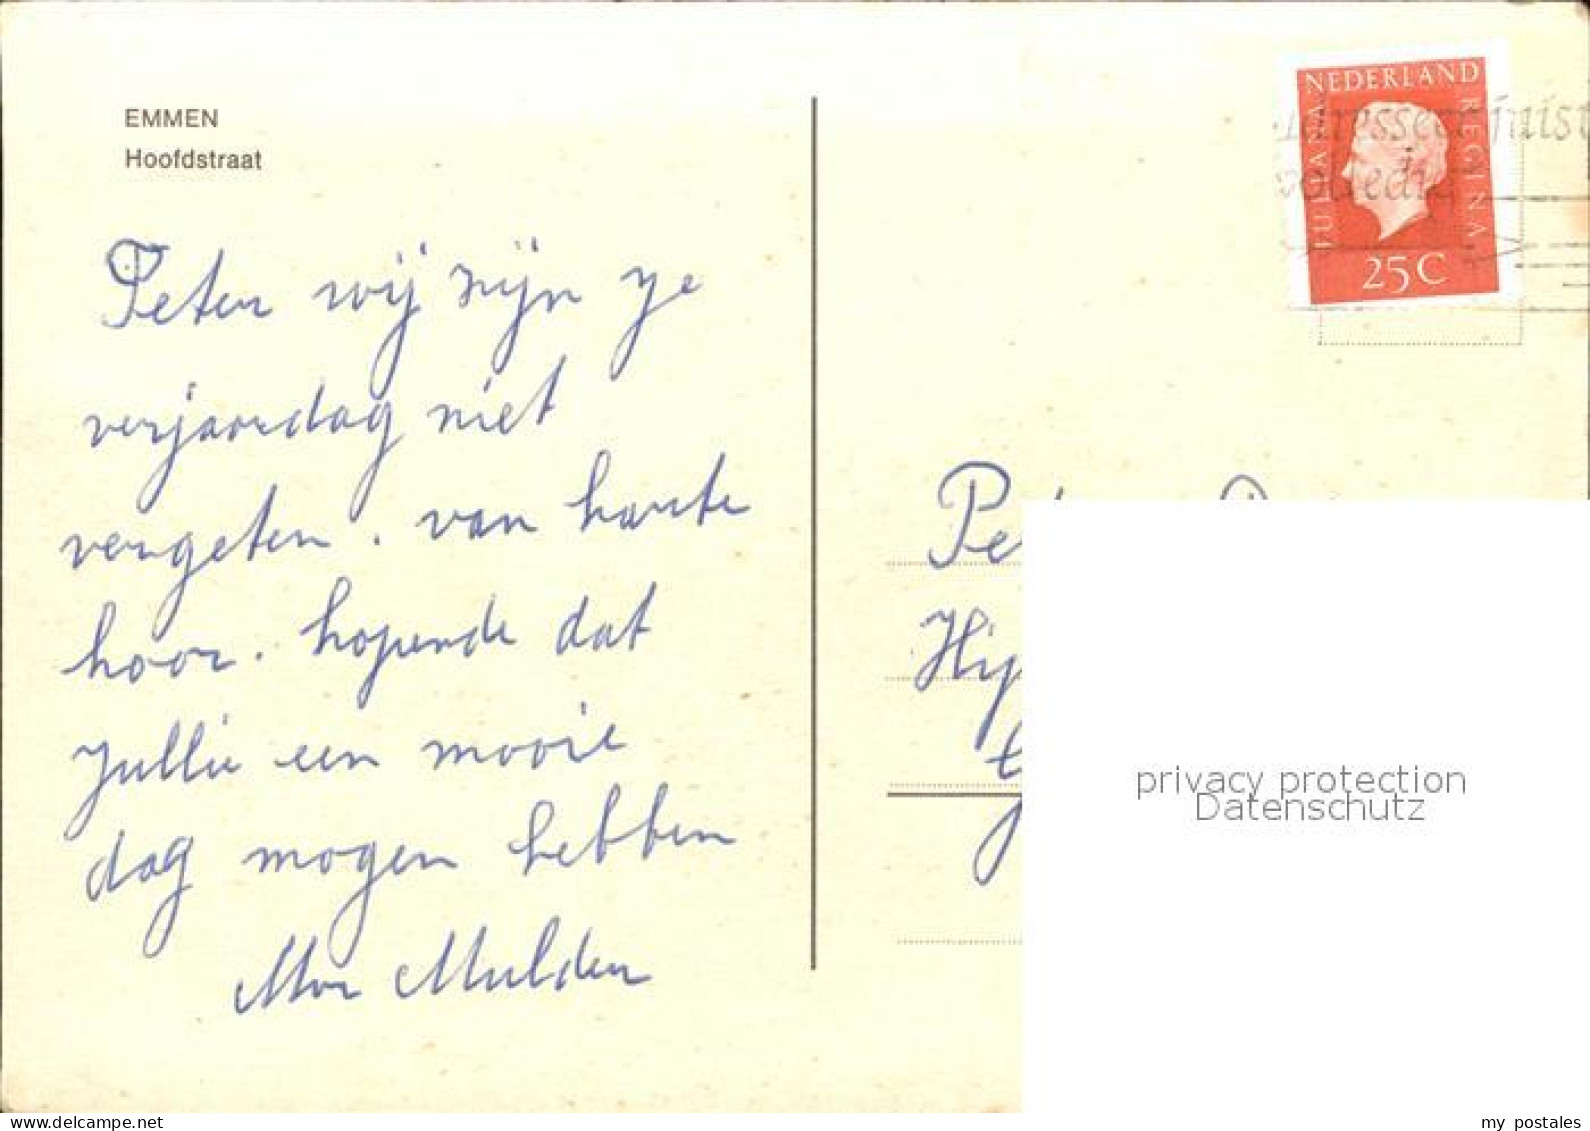 EMMEN
Hoofdstraat
Peter wij zijn je
verjaardag niet
vergeten. van harte
hoor. hopende dat
jullie een mooie
dag mogen hebben
Mvr Mulder
NEDERLAND
JULIANA
REGINA
25 C
juist
volledig
privacy protection
Datenschutz
delcampe.net
my_postales